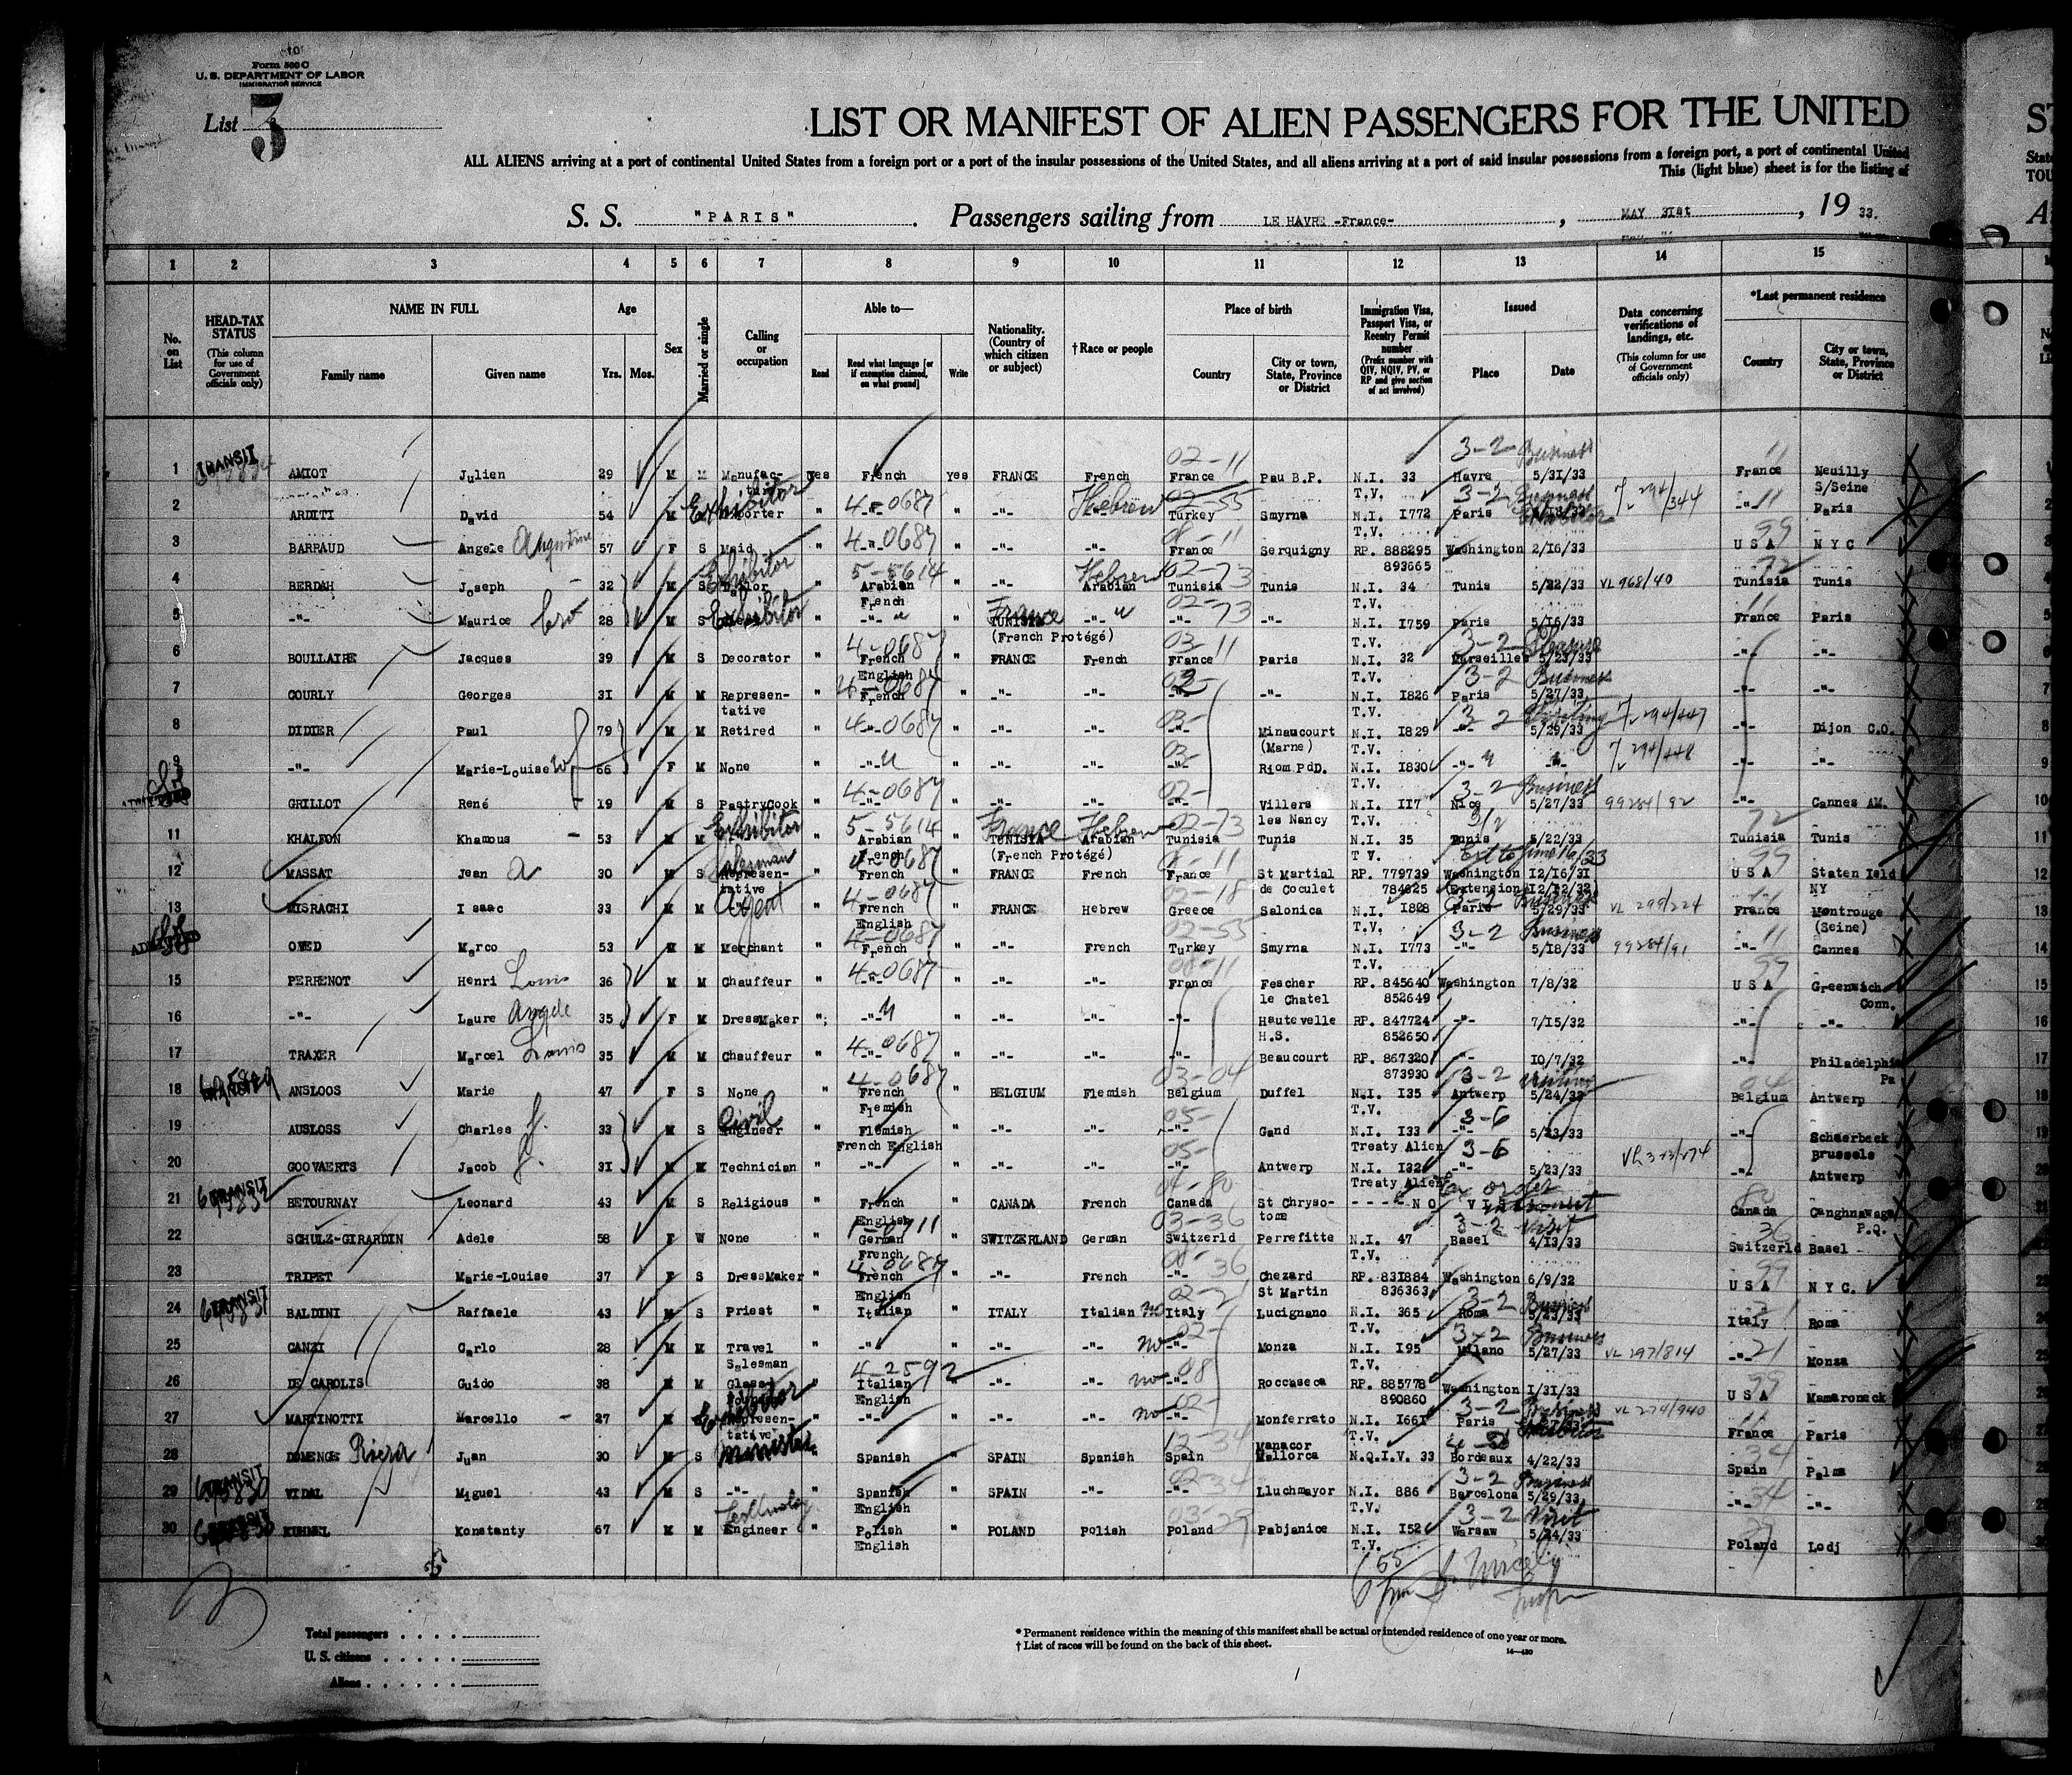 Form 500 C
U. S. DEPARTMENT OF LABOR
IMMIGRATION SERVICE
List 3
LIST OR MANIFEST OF ALIEN PASSENGERS FOR THE UNITED
ALL ALIENS arriving at a port of continental United States from a foreign port or a port of the insular possessions of the United States, and all aliens arriving at a port of said insular possessions from a foreign port, a port of continental United
This (light blue) sheet is for the listing of
S. S. "PARIS". Passengers sailing from LE HAVRE -France-, MAY 31st, 19 33.
1 2 3 4 5 6 7 8 9 10 11 12 13 14 15
No. on List
HEAD-TAX STATUS (This column for use of Government officials only)
NAME IN FULL
Family name Given name
Age
Yrs. Mos.
Sex
Married or single
Calling or occupation
Able to—
Read Read what language [or if exemption claimed, on what ground] Write
Nationality. (Country of which citizen or subject)
†Race or people
Place of birth
Country City or town, State, Province or District
Immigration Visa, Passport Visa, or Reentry Permit number (Prefix number with QIV, NQIV, PV, or RP and give section of act involved)
Issued
Place Date
Data concerning verifications of landings, etc. (This column for use of Government officials only)
*Last permanent residence
Country City or town, State, Province or District
1 TRANSIT AMIOT Julien 29 M M Manufac- Yes French Yes FRANCE French France Pau B.P. N.I. 33 T.V. Havre 5/31/33 3-2 Business France Neuilly S/Seine
2 ARDITI David 54 M Exhibitor " 4-0687 " -"- Hebrew Turkey Smyrna N.I. 1772 T.V. Paris 3-2 Business -"- Paris
3 BARRAUD Angele Augustine 57 F S Maid " 4-0687 " -"- -"- France Serquigny RP. 888295 893665 Washington 2/16/33 U S A N Y C
4 BERDAH Joseph 32 M S Exhibitor " 5-5614 Arabian French " -"- Hebrew Arabian Tunisia Tunis N.I. 34 T.V. Tunis 5/22/33 VL 968/40 Tunisia Tunis
5 -"- Maurice 28 M S Exhibitor " -"- " France TUNISIA (French Protégé) -"- -"- -"- N.I. 1759 T.V. Paris 5/16/33 France Paris
6 BOULLAIRE Jacques 39 M S Decorator " 4-0687 French English " FRANCE French France Paris N.I. 32 T.V. Marseille 5/23/33 3-2 Pleasure -"- -"-
7 COURLY Georges 31 M M Represen-tative " 4-0687 French " -"- -"- -"- -"- N.I. 1826 T.V. Paris 5/27/33 3-2 Business -"- -"-
8 DIDIER Paul 79 M M Retired " 4-0687 " -"- -"- -"- Minaucourt (Marne) N.I. 1829 T.V. -"- 5/29/33 3-2 Visiting -"- Dijon C.O.
9 -"- Marie-Louise 66 F M None " -"- " -"- -"- -"- Riom PdD. N.I. 1830 T.V. -"- -"- -"-
10 GRILLOT René 19 M S PastryCook " 4-0687 " -"- -"- -"- Villers les Nancy N.I. 117 T.V. Nice 5/27/33 3-2 Business 99284/92 -"- Cannes AM.
11 KHALFON Khamous 53 M M Exhibitor " 5-5614 Arabian French " France TUNISIA (French Protégé) Hebrew Arabian Tunisia Tunis N.I. 35 T V. Tunis 5/22/33 Tunisia Tunis
12 MASSAT Jean A 30 M S Salesman Represen-tative " 4-0687 French " FRANCE French France St Martial de Coculet RP. 779739 784625 Washington 12/16/31 (Extension 12/12/32) U S A Staten Isld NY
13 MISRACHI Isaac 33 M M Agent " 4-0687 French English " FRANCE Hebrew Greece Salonica N.I. 1828 T.V. Paris 5/29/33 3-2 Business VL 299/224 France Montrouge (Seine)
14 OVED Marco 53 M M Merchant " 4-0687 French " -"- French Turkey Smyrna N.I. 1773 T.V. -"- 5/18/33 3-2 Business 99284/91 -"- Cannes
15 PERRENOT Henri Louis 36 M M Chauffeur " 4-0687 " -"- -"- France Fescher le Chatel RP. 845640 852649 Washington 7/8/32 U S A Greenwich Conn.
16 -"- Laure Angele 35 F M DressMaker " -"- " -"- -"- -"- Hautevelle H.S. RP. 847724 852650 -"- 7/15/32 -"- -"-
17 TRAXER Marcel Louis 35 M M Chauffeur " 4-0687 " -"- -"- -"- Beaucourt RP. 867320 873930 -"- 10/7/32 -"- Philadelphia Pa
18 ANSLOOS Marie 47 F S None " 4-0687 French Flemish " BELGIUM Flemish Belgium Duffel N.I. 135 T.V. Antwerp 5/24/33 3-2 Visiting Belgium Antwerp
19 AUSLOSS Charles J. 33 M S Civil Engineer " Flemish French English " -"- -"- -"- Gand N.I. 133 Treaty Alien -"- 5/23/33 3-6 -"- Schaerbeck Brussels
20 GOOVAERTS Jacob J. 31 M M Technician " -"- " -"- -"- -"- Antwerp N.I. 132 Treaty Alien -"- 5/23/33 3-6 -"- Antwerp
21 TRANSIT BETOURNAY Leonard 43 M S Religious " French English " CANADA French Canada St Chryso-tome N O Canada Caughnawaga P.Q.
22 SCHULZ-GIRARDIN Adele 58 F W None " German French " SWITZERLAND German Switzerld Perrefitte N.I. 47 T.V. Basel 4/13/33 3-2 Visit Switzerld Basel
23 TRIPET Marie-Louise 37 F S DressMaker " 4-0687 French English " -"- French -"- Chezard St Martin RP. 831884 836363 Washington 6/9/32 U S A N Y C.
24 TRANSIT BALDINI Raffaele 43 M S Priest " Italian " ITALY Italian Italy Lucignano N.I. 365 T.V. Roma 5/23/33 3-2 Business Italy Roma
25 CANZI Carlo 28 M M Travel Salesman " -"- " -"- -"- -"- Monza N.I. 195 T.V. Milano 5/27/33 3-2 Business VL 297/814 -"- Monza
26 DE CAROLIS Guido 38 M M " 4-2592 Italian English " -"- -"- -"- Roccaseca RP. 885778 890860 Washington 1/31/33 U S A Mamaroneck
27 MARTINOTTI Marcello 27 M Exhibitor Represen-tative " -"- " -"- -"- -"- Monferrato N.I. 1661 T.V. Paris 3-2 Business VL 274/940 France Paris
28 DOMENGE Riera Juan 30 M S Minister " Spanish " SPAIN Spanish Spain Manacor Mallorca N.Q.I.V. 33 Bordeaux 4/22/33 Spain Palma
29 TRANSIT VIDAL Miguel 43 M S -"- " Spanish English " SPAIN -"- -"- Lluchmayor N.I. 886 T.V. Barcelona 5/29/33 3-2 Business -"- -"-
30 KUHMEL Konstanty 67 M M Engineer " Polish English " POLAND Polish Poland Pabjanice N.I. 152 T.V. Warsaw 5/24/33 3-2 Visit Poland Lodj
Total passengers
U. S. citizens
Aliens
* Permanent residence within the meaning of this manifest shall be actual or intended residence of one year or more.
† List of races will be found on the back of this sheet.
14—430